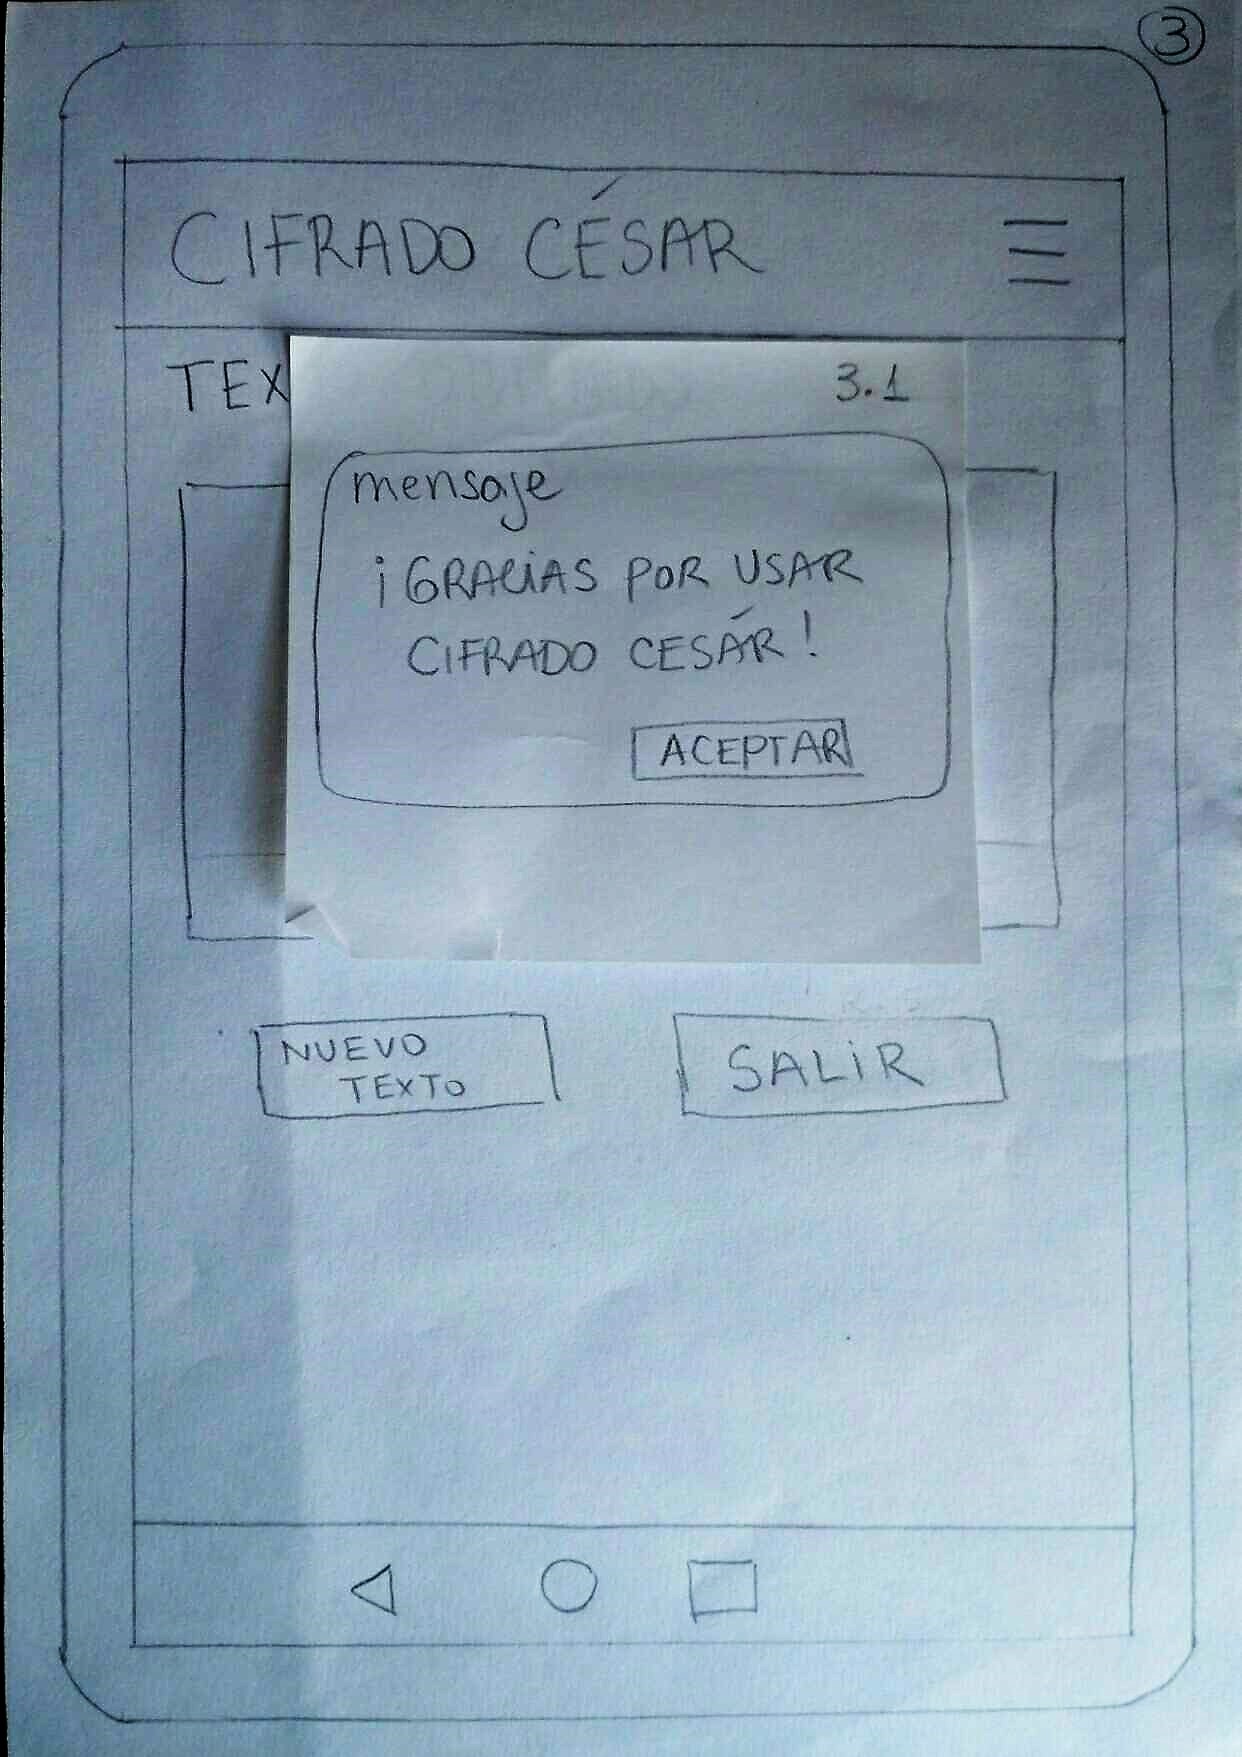 3
CIFRADO CÉSAR
TEX
3.1
mensaje
¡GRACIAS POR USAR
CIFRADO CESÁR!
ACEPTAR
NUEVO
TEXTO
SALIR